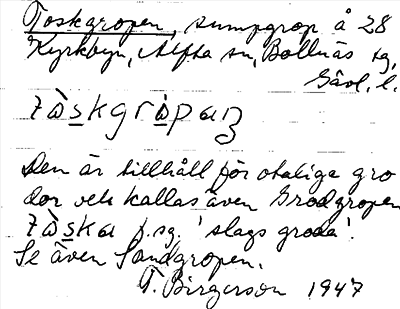 Toskgropen, sumpgrop å 28
Kyrkbyn, Alfta sn, Bollnäs tg,
Gävl. l.
tɷ̀skgrɷ̀pan
Den är tillhåll för otaliga gro
dor och kallas även Grodgropen
tɷ̀ska f.sg. 'slags groda'.
Se även Sandgropen.
T. Birgerson 1947